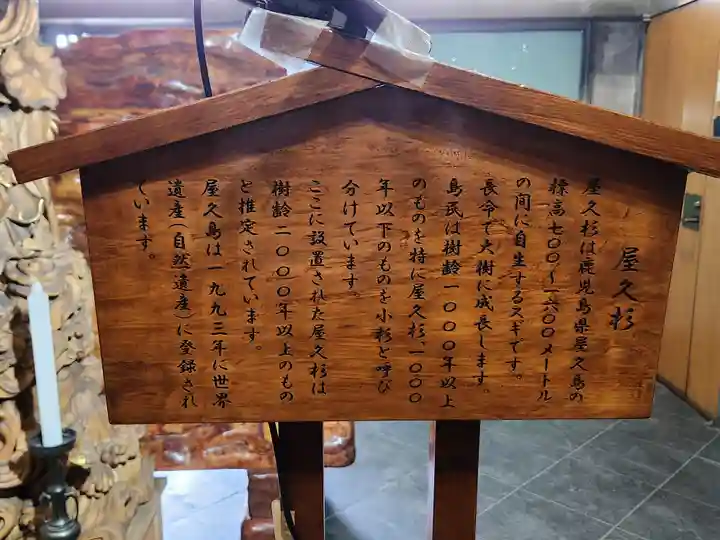 屋久杉
屋久杉は鹿児島県屋久島の
標高七〇〇～一六〇〇メートル
の間に自生するスギです。
長命で大樹に成長します。
島民は樹齢一〇〇〇年以上
のものを特に屋久杉、一〇〇〇
年以下のものを小杉と呼び
分けています。
ここに設置された屋久杉は
樹齢二〇〇〇年以上のもの
と推定されています。
屋久島は一九九三年に世界
遺産(自然遺産)に登録され
ています。